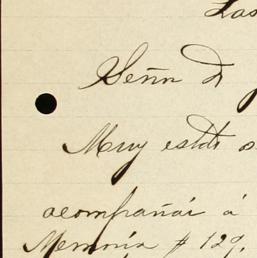 Las
Señor D
Muy estdo
acompañar á
Memoria # 129.